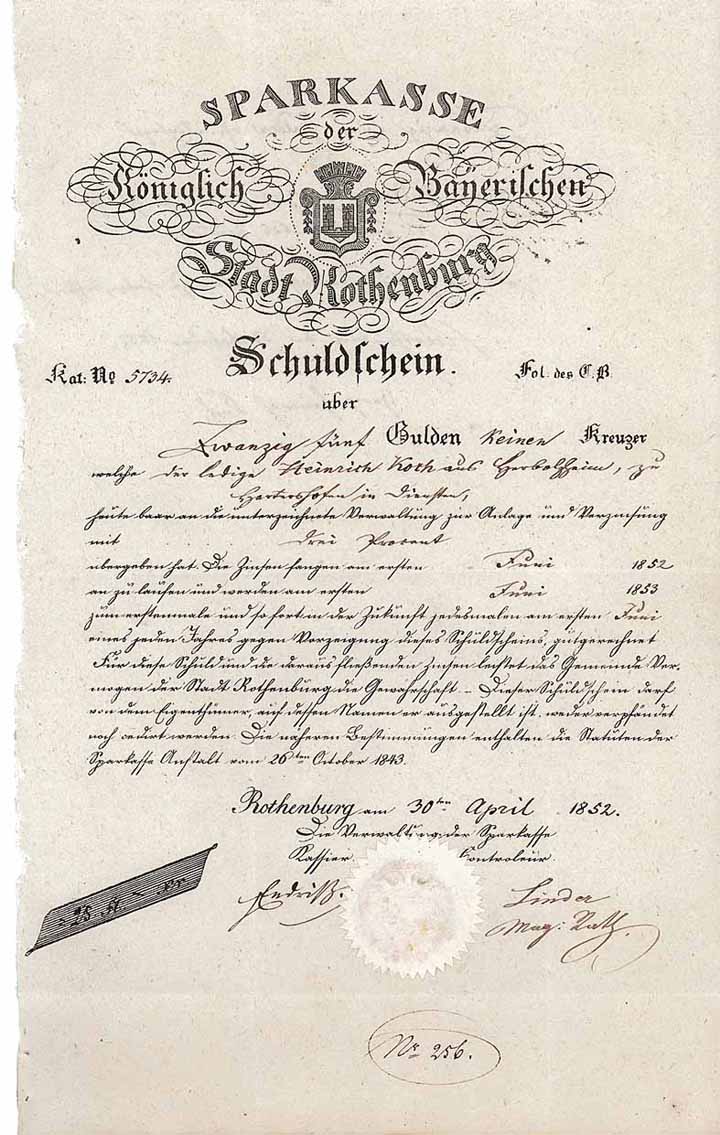 SPARKASSE
der
Königlich Bayerischen
Stadt Rothenburg
Schuldschein.
Kat: No 5734. Fol. des C.B.
über
Zwanzig fünf Gulden keinen Kreuzer
welche der ledige Heinrich Koch aus Herbolzheim, zu
Hartershofen in Diensten,
heute baar an die unterzeichnete Verwaltung zur Anlage und Verzinsung
mit drei Procent
übergeben hat. Die Zinsen fangen am ersten Juni 1852
an zu laufen und werden am ersten Juni 1853
zum erstenmale und so fort in der Zukunft jedesmalen am ersten Juni
eines jeden Jahres gegen Vorzeigung dieses Schuldscheins, gutgerechnet
Für diese Schuld und die daraus fließenden Zinsen leistet das Gemeinde Ver-
mögen der Stadt Rothenburg die Gewährschaft. – Dieser Schuldschein darf
von dem Eigenthümer, auf dessen Namen er ausgestellt ist, weder verpfändet
noch cedirt werden. Die näheren Bestimmungen enthalten die Statuten der
Sparkasse Anstalt vom 26ten October 1843.
Rothenburg am 30ten April 1852.
Die Verwaltung der Sparkasse
Kassier Controleur
Endriß. Linder
Mag: Rath.
25 fl. – Kr.
Nr 256.